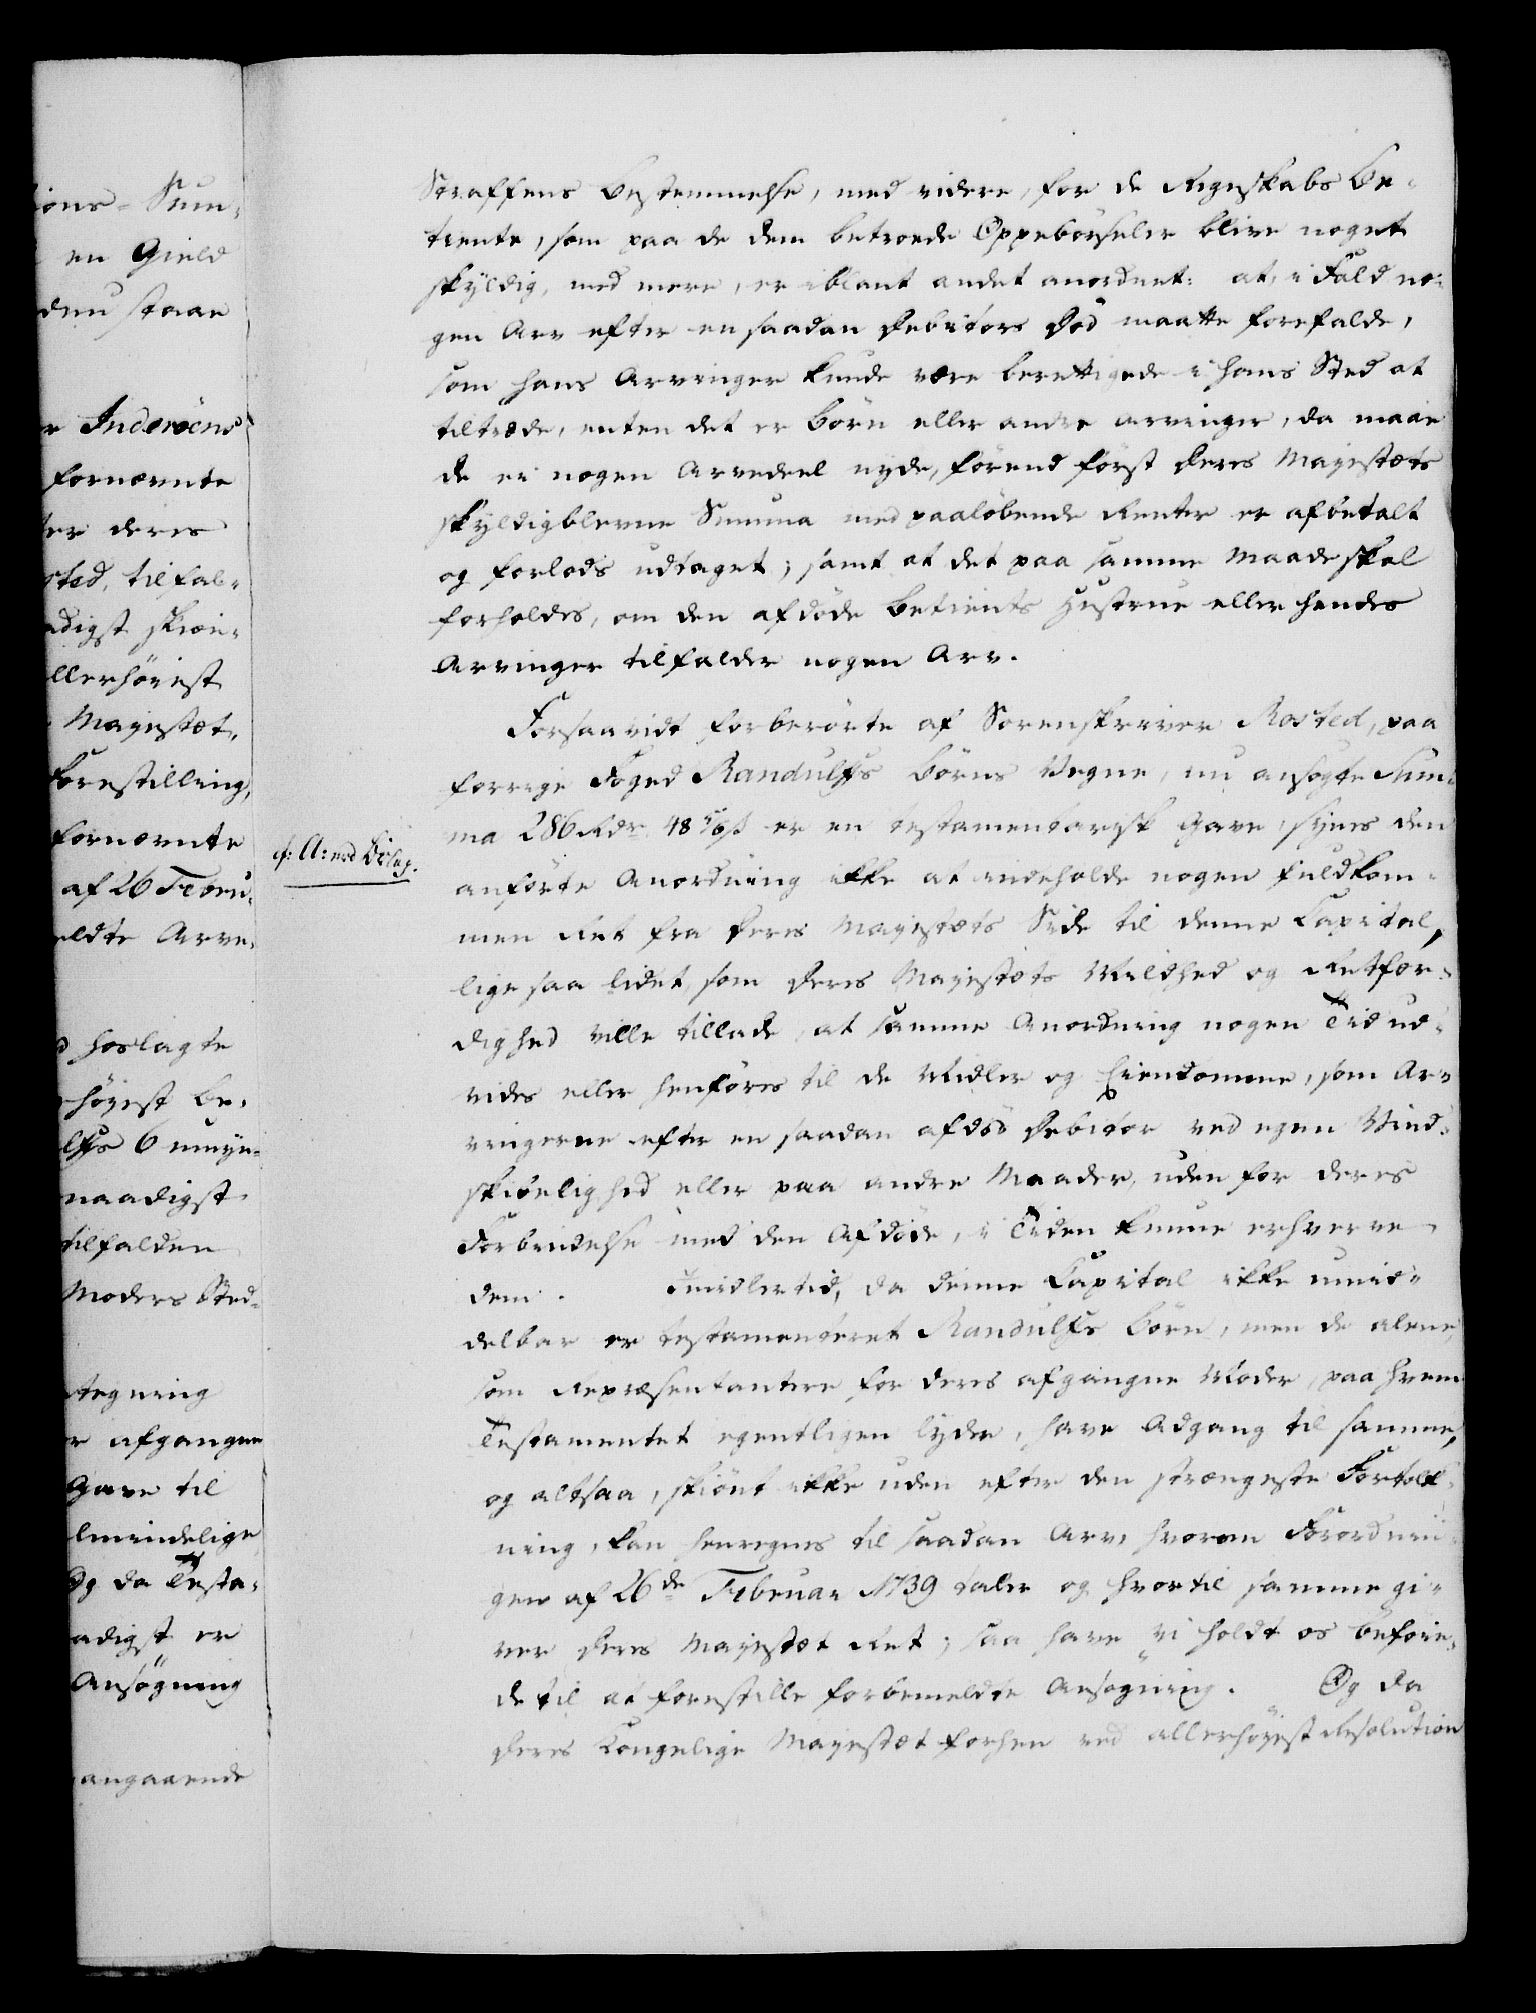 ions-Sum-
en Gield
denu staae
r Inderöens
fornævnte
ter deres
sted, tilfal-
adigst skiøn-
llerhöiest
Mayestæt,
Forestilling,
fornævnte
af 26 Febru-
eldte Arve-
d hoslagte
höyest be-
lffs 6 umyn-
naadigst
tilfalden
Moders Sted-
tegning
r afgangne
Gave til
lmindelige
Og da Testa-
adigst er
Ansøgning
angaaende
Straffens Bestemmelse, med videre, for de Regnskabs Be-
tiente, som paa de dem betroede Oppebörseler blive noget
skyldig, med mere, er iblant andet anordnet: at, i Fald no-
gen Arv efter en saadan Debitors Död maatte forefalde,
som hans Arvinger kunde være berettigede i hans Sted at
tiltræde, enten det er Börn eller andre Arvinger, da maae
de ei nogen Arvedeel nyde, förend först Deres Mayestæts
skyldigblevne Summa med paalöbende Renter er afbetalt
og forlods udtaget; samt at det paa samme Maade skal
forholdes, om den afdöde Betients Hustrue eller hendes
Arvinger tilfalder nogen Arv.
Forsaavidt forberörte af Sorenskriver Rosted, paa
forrige Foged Randulffs Börns Vegne, nu ansøgte Sum-
ma 286 Rdr. 48 1/6 ß er en testamentarisk Gave, synes den
cf: A: med Bilag.
anförte Anordning ikke at indeholde nogen fuldkom-
men Ret fra Deres Mayestæts Side til denne Capital,
lige saa lidet, som Deres Mayestæts Mildhed og Retfær-
dighed ville tillade, at samme Anordning nogen Tid ud-
vides eller henföres til de Midler og Eiendomme, som Ar-
vingerne efter en saadan afdöd Debitor ved egen Vind-
skibelighed eller paa andre Maader, uden for deres
Forbindelse med den Afdöde, i Tiden kunne erhverve
dem. Imidlertid, da denne Capital ikke umid-
delbar er testamenteret Randulffs Börn, men de alene,
som Repræsentantere for deres afgangne Moder, paa hvem
Testamentet egentligen lyder, have Adgang til samme,
og altsaa, skiönt ikke uden efter den strængeste Fortolk-
ning, kan henregnes til saadan Arv, hvorom Forordnin-
gen af 26de Februar 1739 taler og hvortil samme gi-
ver Deres Mayestæt Ret; saa have vi holdt os beföie-
de til at forestille forbemeldte Ansøgning. Og da
Deres Kongelige Mayestæt forhen ved allerhöyest Resolution